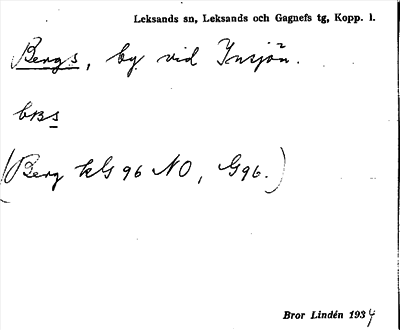 Leksands sn, Leksands och Gagnefs tg, Kopp. l.
Bergs, by vid Insjön.
bɪʀs
(Berg kG 96 NO, G96.)
Bror Lindén 1934